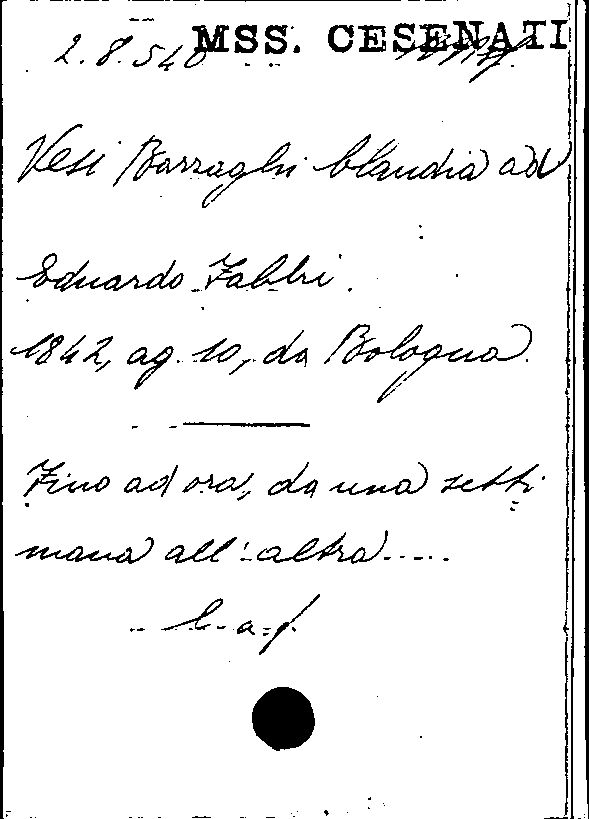 MSS. CESENATI
2.8.540
Vesi Barzaghi Claudia ad
Eduardo Fabbri.
1842, ag. 10, da Bologna.
Fino ad ora, da una setti
mana all'altra.....
l. a. f.